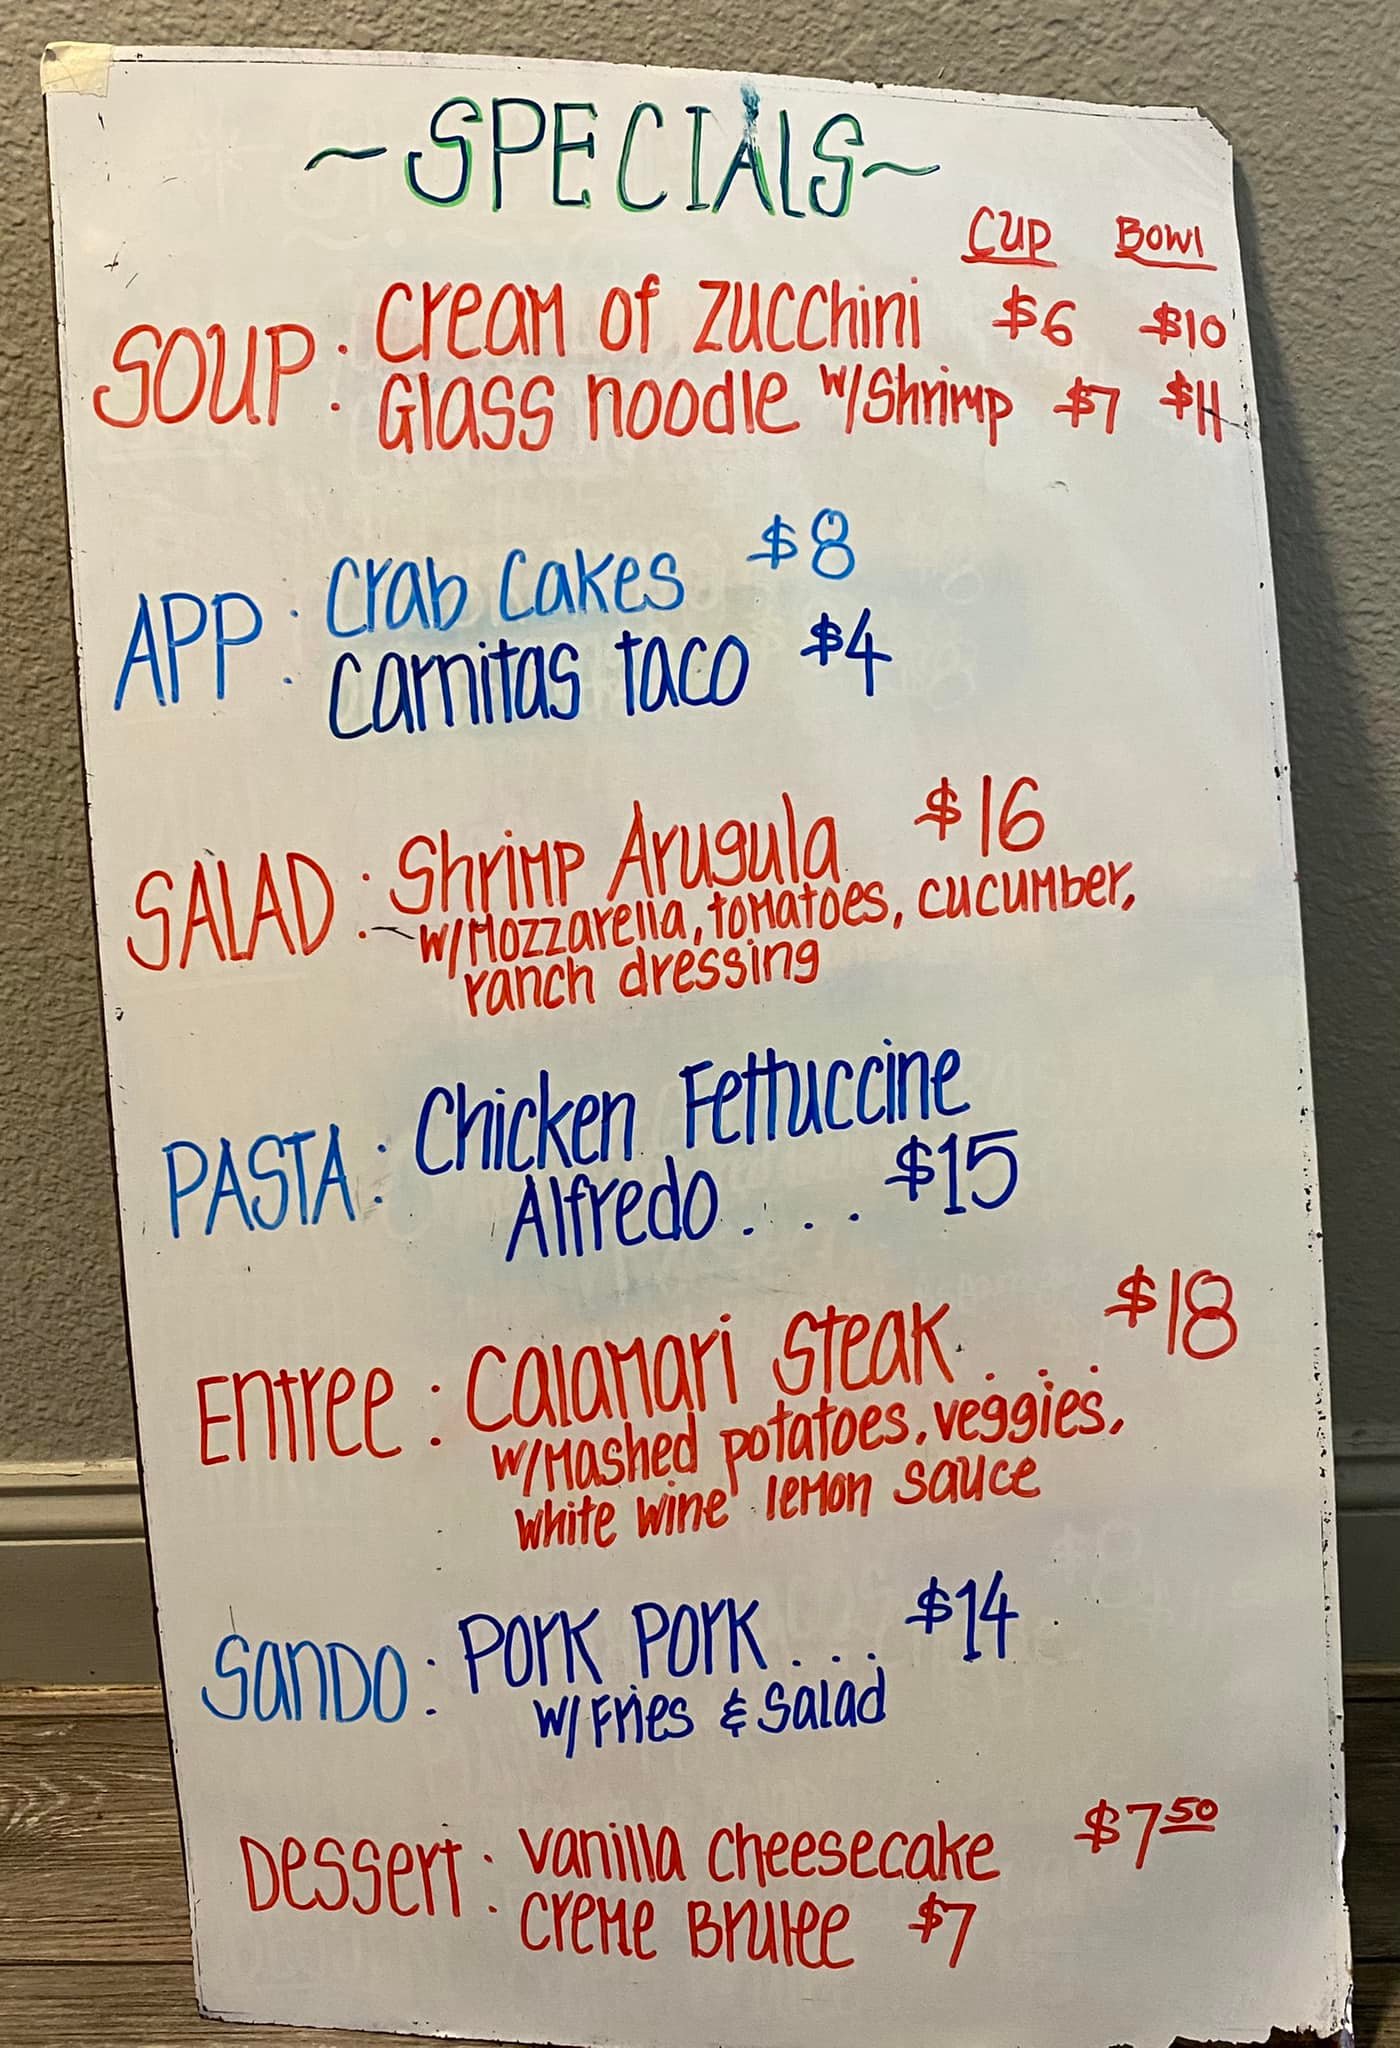 ~SPECIALS~
CUP Bowl
SOUP: Cream of Zucchini $6 $10
Glass noodle w/Shrimp $7 $11
APP: Crab Cakes $8
Carnitas taco $4
SALAD: Shrimp Arugula $16
w/Mozzarella, tomatoes, cucumber,
ranch dressing
PASTA: Chicken Fettuccine
Alfredo.... $15
Entree: Calamari Steak.... $18
w/Mashed potatoes, veggies,
white wine lemon sauce
SanDO: Pork Pork... $14
w/Fries & Salad
Dessert: vanilla cheesecake $7 50
Creme Brulee $7